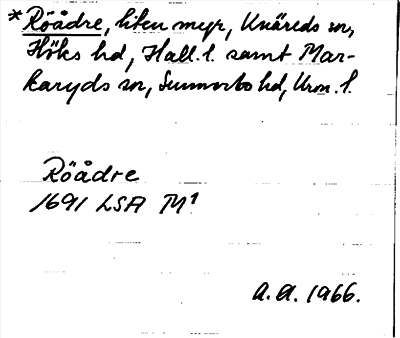 *Röådre, liten myr, Knäreds sn,
Höks hd, Hall. l. samt Mar-
karyds sn, Sunnerbo hd, Kron. l.
Röådre
1691 LSA M¹
A.A. 1966.